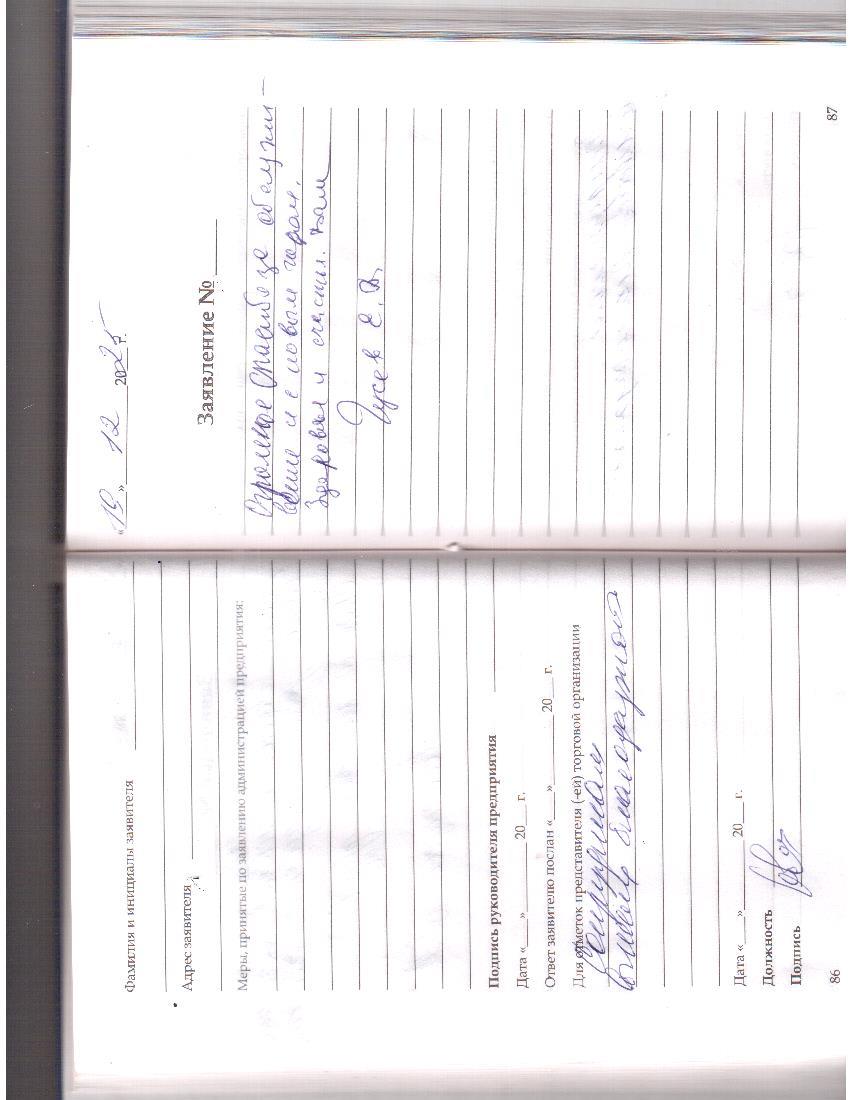 Фамилия и инициалы заявителя
Адрес заявителя
Меры, принятые по заявлению администрацией предприятия:
Подпись руководителя предприятия
Дата «___»________20___г.
Ответ заявителю послан «___»________20___г.
Для отметок представителя (-ей) торговой организации
Сотрудникам
благодарность
Дата «___»________20___г.
Должность
Подпись
86
«19» 12 2025 г.
Заявление №
Огромное Спасибо за обслужи-
вание и с новым годом.
Здоровья и счастья. Вам
Гусев Е.В.
87